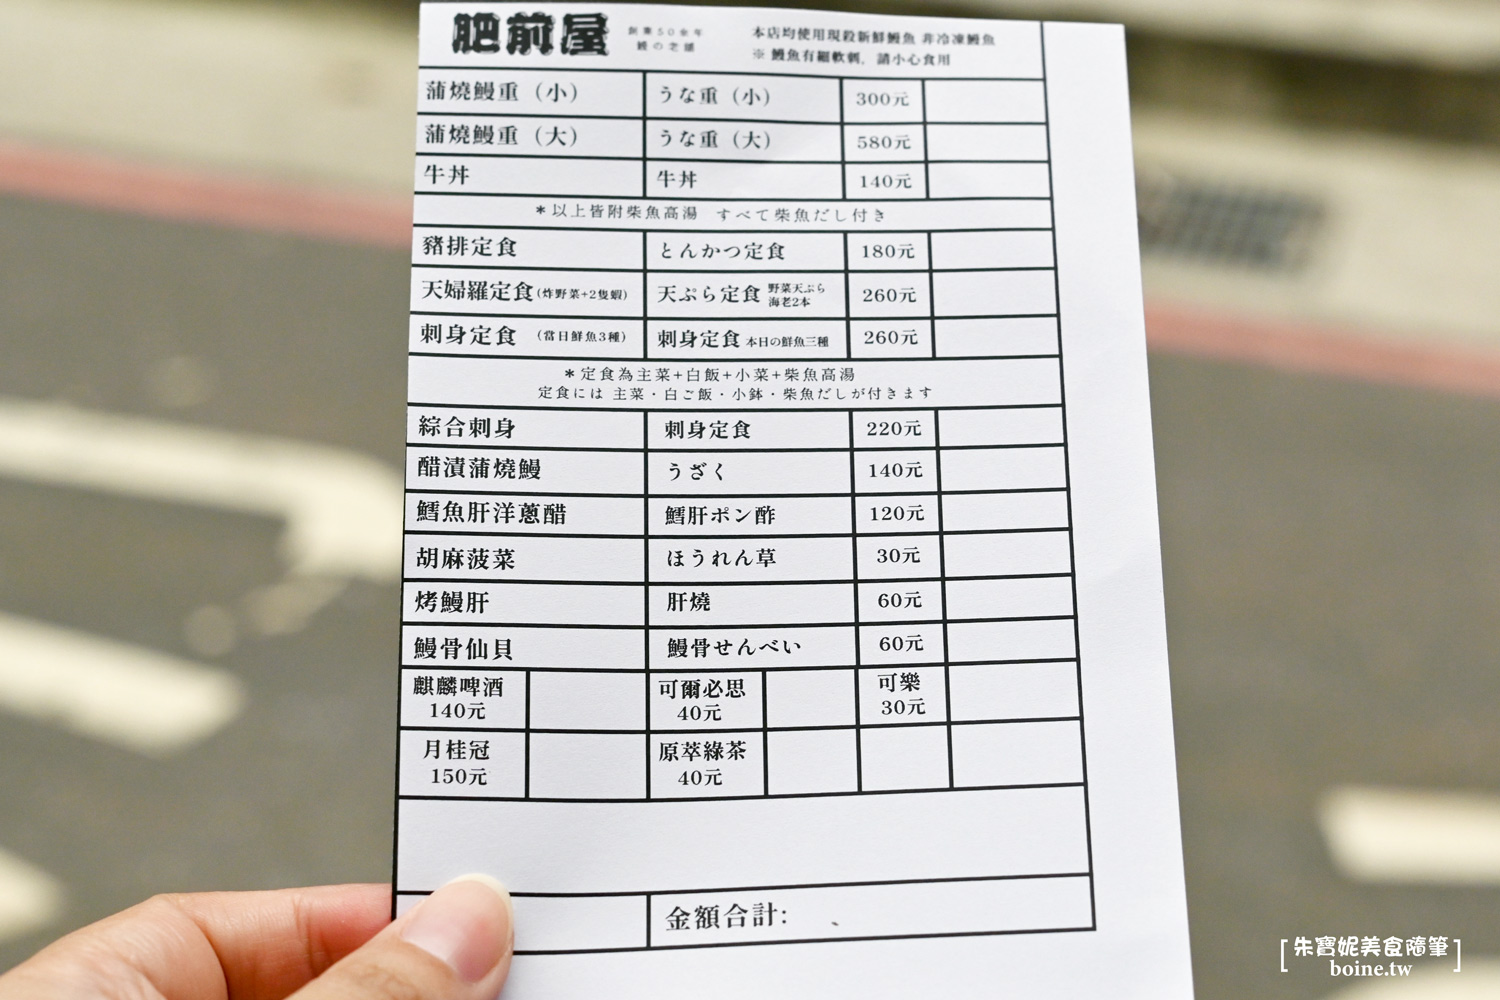 肥前屋 創業50余年 鰻の老舗
本店均使用現殺新鮮鰻魚 非冷凍鰻魚
※ 鰻魚有細軟刺，請小心食用
蒲燒鰻重（小） うな重（小） 300元
蒲燒鰻重（大） うな重（大） 580元
牛丼 牛丼 140元
＊以上皆附柴魚高湯 すべて柴魚だし付き
豬排定食 とんかつ定食 180元
天婦羅定食(炸野菜+2隻蝦) 天ぷら定食 野菜天ぷら 海老2本 260元
刺身定食 (當日鮮魚3種) 刺身定食 本日の鮮魚三種 260元
＊定食為主菜+白飯+小菜+柴魚高湯
定食には 主菜・白ご飯・小鉢・柴魚だしが付きます
綜合刺身 刺身定食 220元
醋漬蒲燒鰻 うざく 140元
鱈魚肝洋蔥醋 鱈肝ポン酢 120元
胡麻菠菜 ほうれん草 30元
烤鰻肝 肝燒 60元
鰻骨仙貝 鰻骨せんべい 60元
麒麟啤酒 140元 可爾必思 40元 可樂 30元
月桂冠 150元 原萃綠茶 40元
金額合計:
朱寶妮美食隨筆
boine.tw